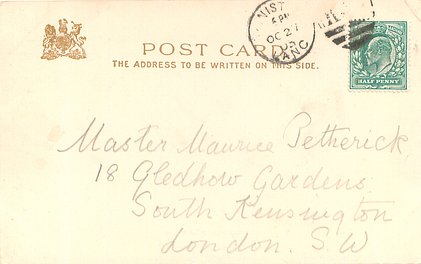 POST CARD
THE ADDRESS TO BE WRITTEN ON THIS SIDE.
OC 21
HALF PENNY
Master Maurice Petherick
18 Gledhow Gardens
South Kensington
London. S.W